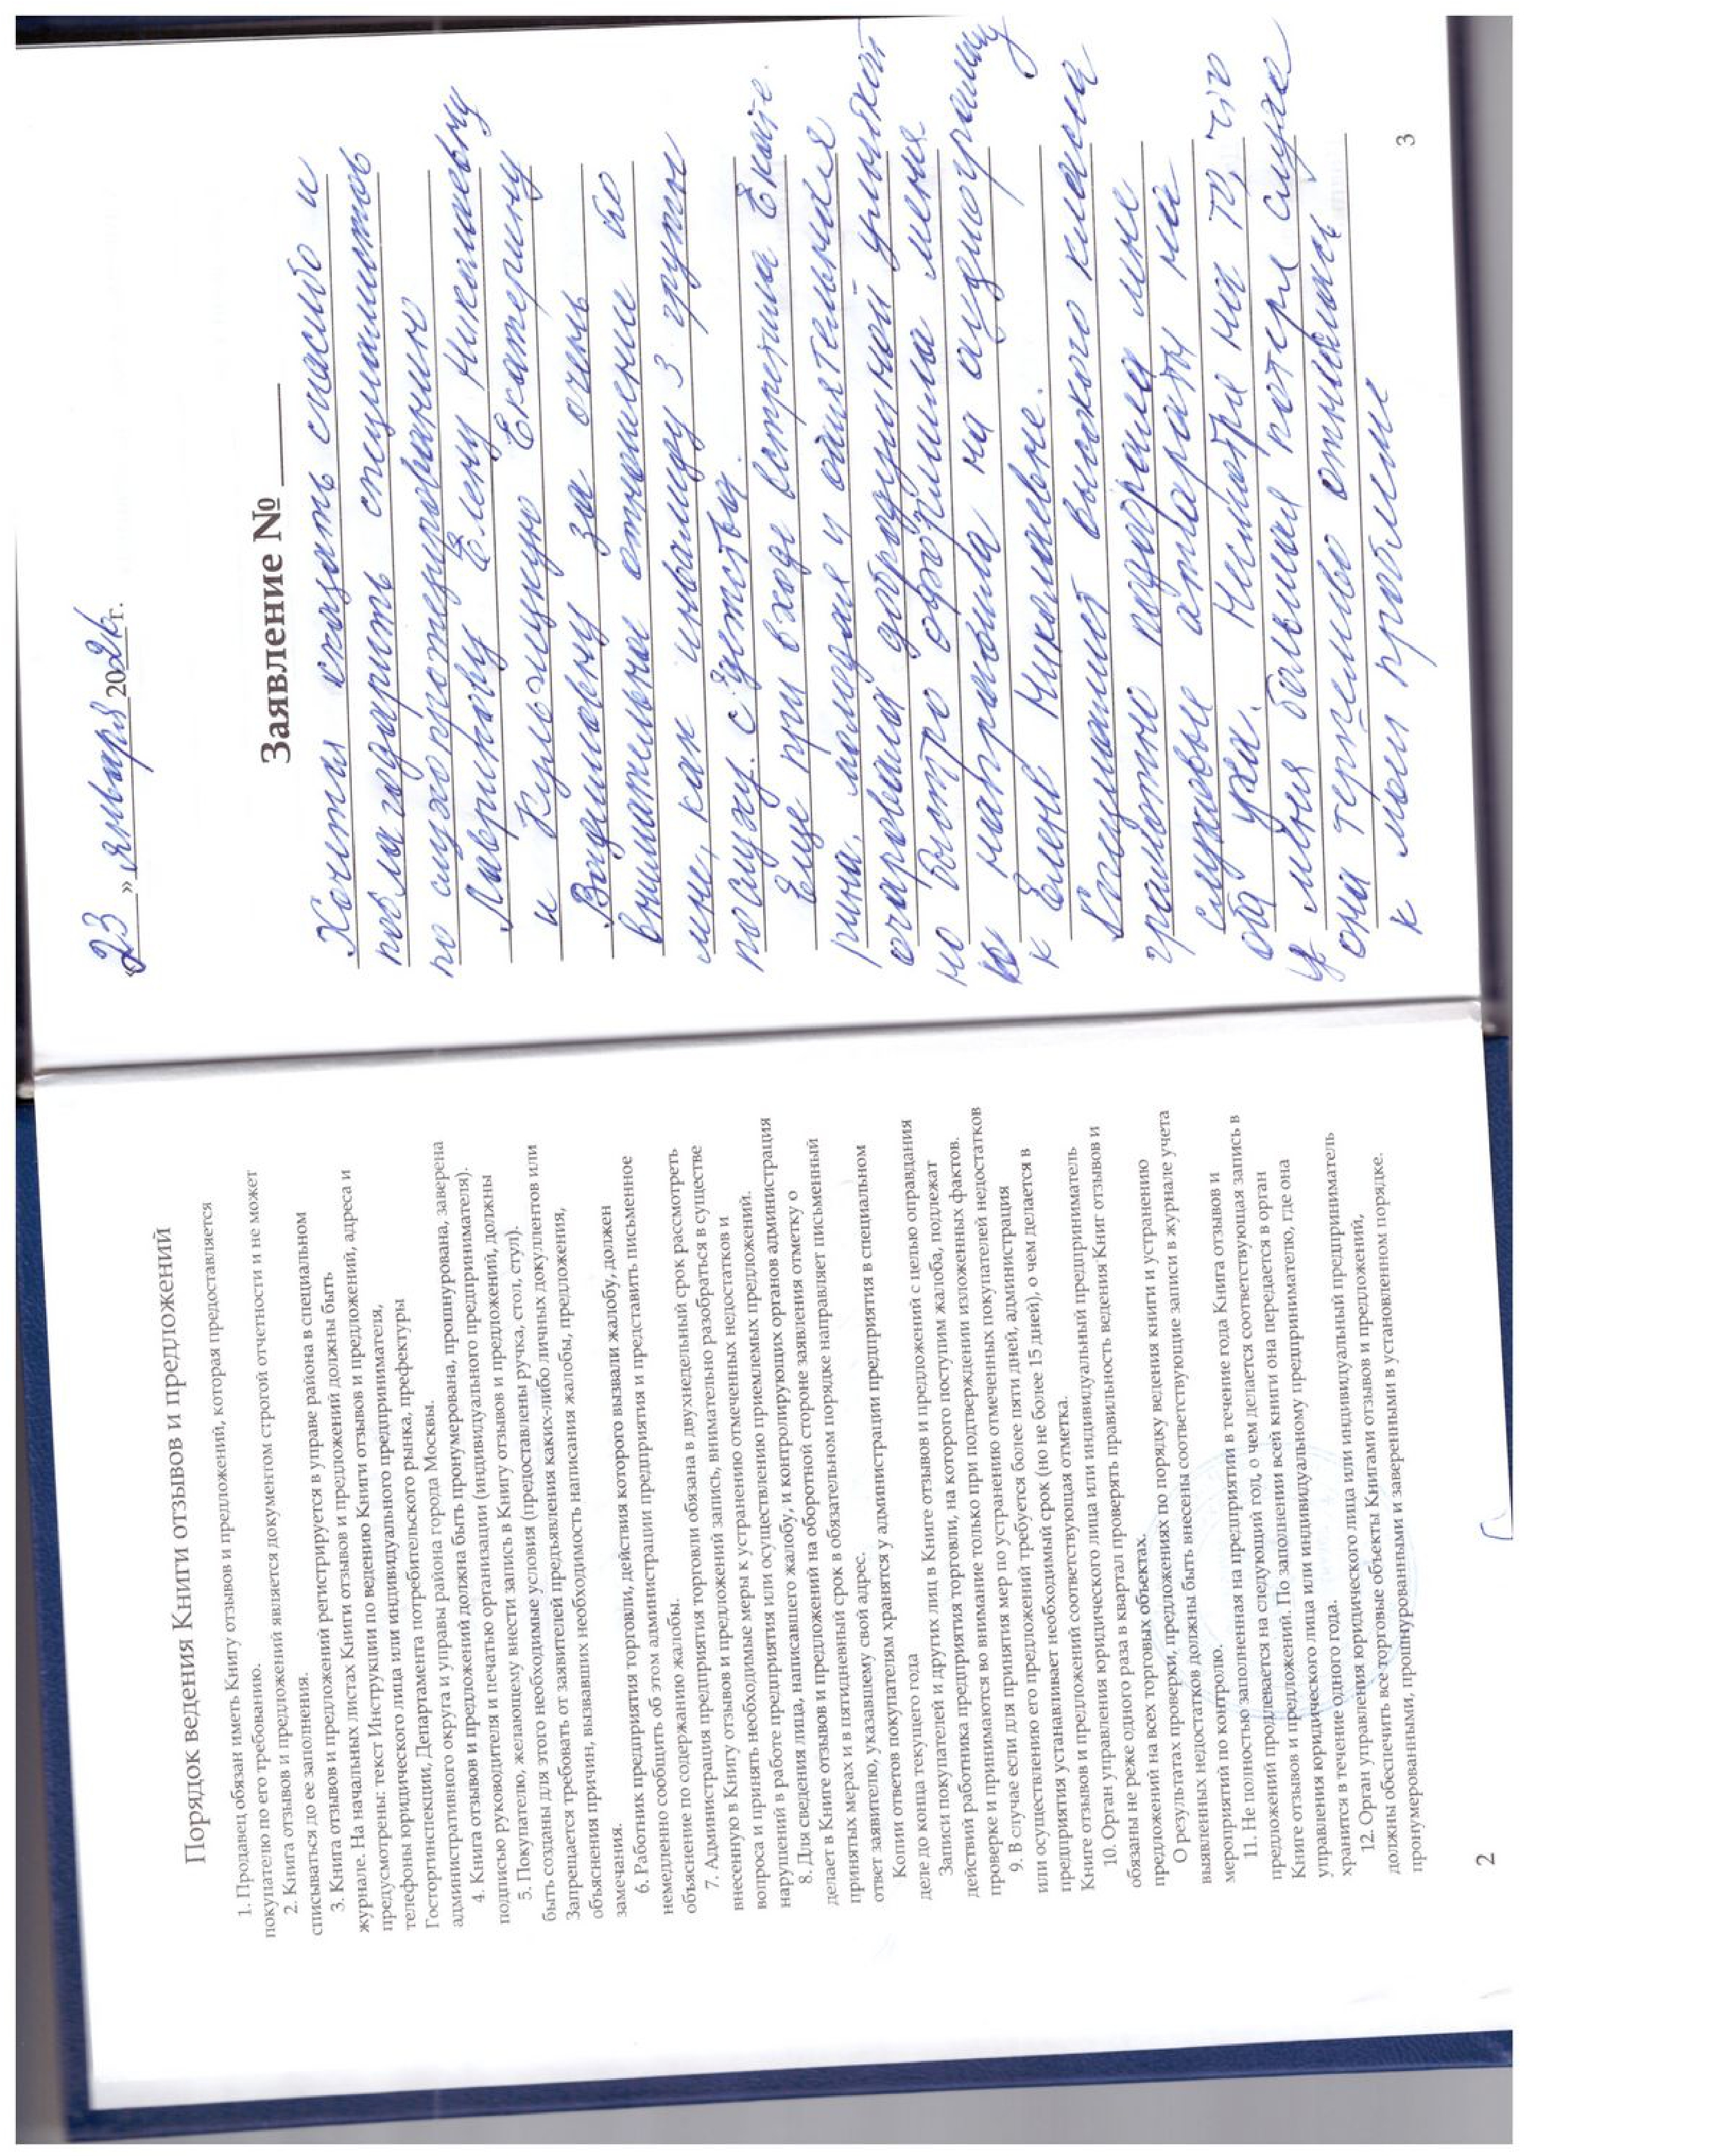 Порядок ведения Книги отзывов и предложений
1. Продавец обязан иметь Книгу отзывов и предложений, которая предоставляется
покупателю по его требованию.
2. Книга отзывов и предложений является документом строгой отчетности и не может
списываться до ее заполнения.
3. Книга отзывов и предложений регистрируется в управе района в специальном
журнале. На начальных листах Книги отзывов и предложений должны быть
предусмотрены: текст Инструкции по ведению Книги отзывов и предложений, адреса и
телефоны юридического лица или индивидуального предпринимателя,
Госторгинспекции, Департамента потребительского рынка, префектуры
административного округа и управы района города Москвы.
4. Книга отзывов и предложений должна быть пронумерована, прошнурована, заверена
подписью руководителя и печатью организации (индивидуального предпринимателя).
5. Покупателю, желающему внести запись в Книгу отзывов и предложений, должны
быть созданы для этого необходимые условия (предоставлены ручка, стол, стул).
Запрещается требовать от заявителей предъявления каких-либо личных докуллентов или
объяснения причин, вызвавших необходимость написания жалобы, предложения,
замечания.
6. Работник предприятия торговли, действия которого вызвали жалобу, должен
немедленно сообщить об этом администрации предприятия и представить письменное
объяснение по содержанию жалобы.
7. Администрация предприятия торговли обязана в двухнедельный срок рассмотреть
внесенную в Книгу отзывов и предложений запись, внимательно разобраться в существе
вопроса и принять необходимые меры к устранению отмеченных недостатков и
нарушений в работе предприятия или осуществлению приемлемых предложений.
8. Для сведения лица, написавшего жалобу, и контролирующих органов администрация
делает в Книге отзывов и предложений на оборотной стороне заявления отметку о
принятых мерах и в пятидневный срок в обязательном порядке направляет письменный
ответ заявителю, указавшему свой адрес.
Копии ответов покупателям хранятся у администрации предприятия в специальном
деле до конца текущего года
Записи покупателей и других лиц в Книге отзывов и предложений с целью оправдания
действий работника предприятия торговли, на которого поступим жалоба, подлежат
проверке и принимаются во внимание только при подтверждении изложенных фактов.
9. В случае если для принятия мер по устранению отмеченных покупателей недостатков
или осуществлению его предложений требуется более пяти дней, администрация
предприятия устанавливает необходимый срок (но не более 15 дней), о чем делается в
Книге отзывов и предложений соответствующая отметка.
10. Орган управления юридического лица или индивидуальный предприниматель
обязаны не реже одного раза в квартал проверять правильность ведения Книг отзывов и
предложений на всех торговых объектах.
О результатах проверки, предложениях по порядку ведения книги и устранению
выявленных недостатков должны быть внесены соответствующие записи в журнале учета
мероприятий по контролю.
11. Не полностью заполненная на предприятии в течение года Книга отзывов и
предложений продлевается на следующий год, о чем делается соответствующая запись в
Книге отзывов и предложений. По заполнении всей книги она передается в орган
управления юридического лица или индивидуальному предпринимателю, где она
хранится в течение одного года.
12. Орган управления юридического лица или индивидуальный предприниматель
должны обеспечить все торговые объекты Книгами отзывов и предложений,
пронумерованными, прошнурованными и заверенными в установленном порядке.
2
«23» января 2026 г.
Заявление № ____
Хочется сказать спасибо и
поблагодарить специалистов
по слухопротезированию
Лаврикову Елену Николаевну
и Екатерину
Вадимовну за очень
внимательное отношение ко
мне, как инвалиду 3 группы
по слуху. с детства.
Еще при входе встретила Екате-
рина, молодая и обаятельная
очаровала добродушной улыбкой
но быстро оформила меня
и направила на аудиограмму
к Елене Николаевне.
Специалист высокого класса
грамотно подобрала мне
слуховые аппараты на
оба уха. Несмотря на то, что
у меня большая потеря слуха
она терпеливо отнеслась
к моей проблеме
3